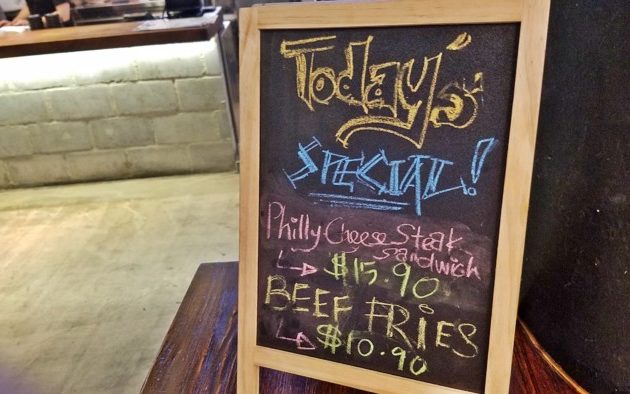 Today's
SPECIAL!
Philly Cheese Steak
Sandwich
$15.90
BEEF FRIES
$10.90